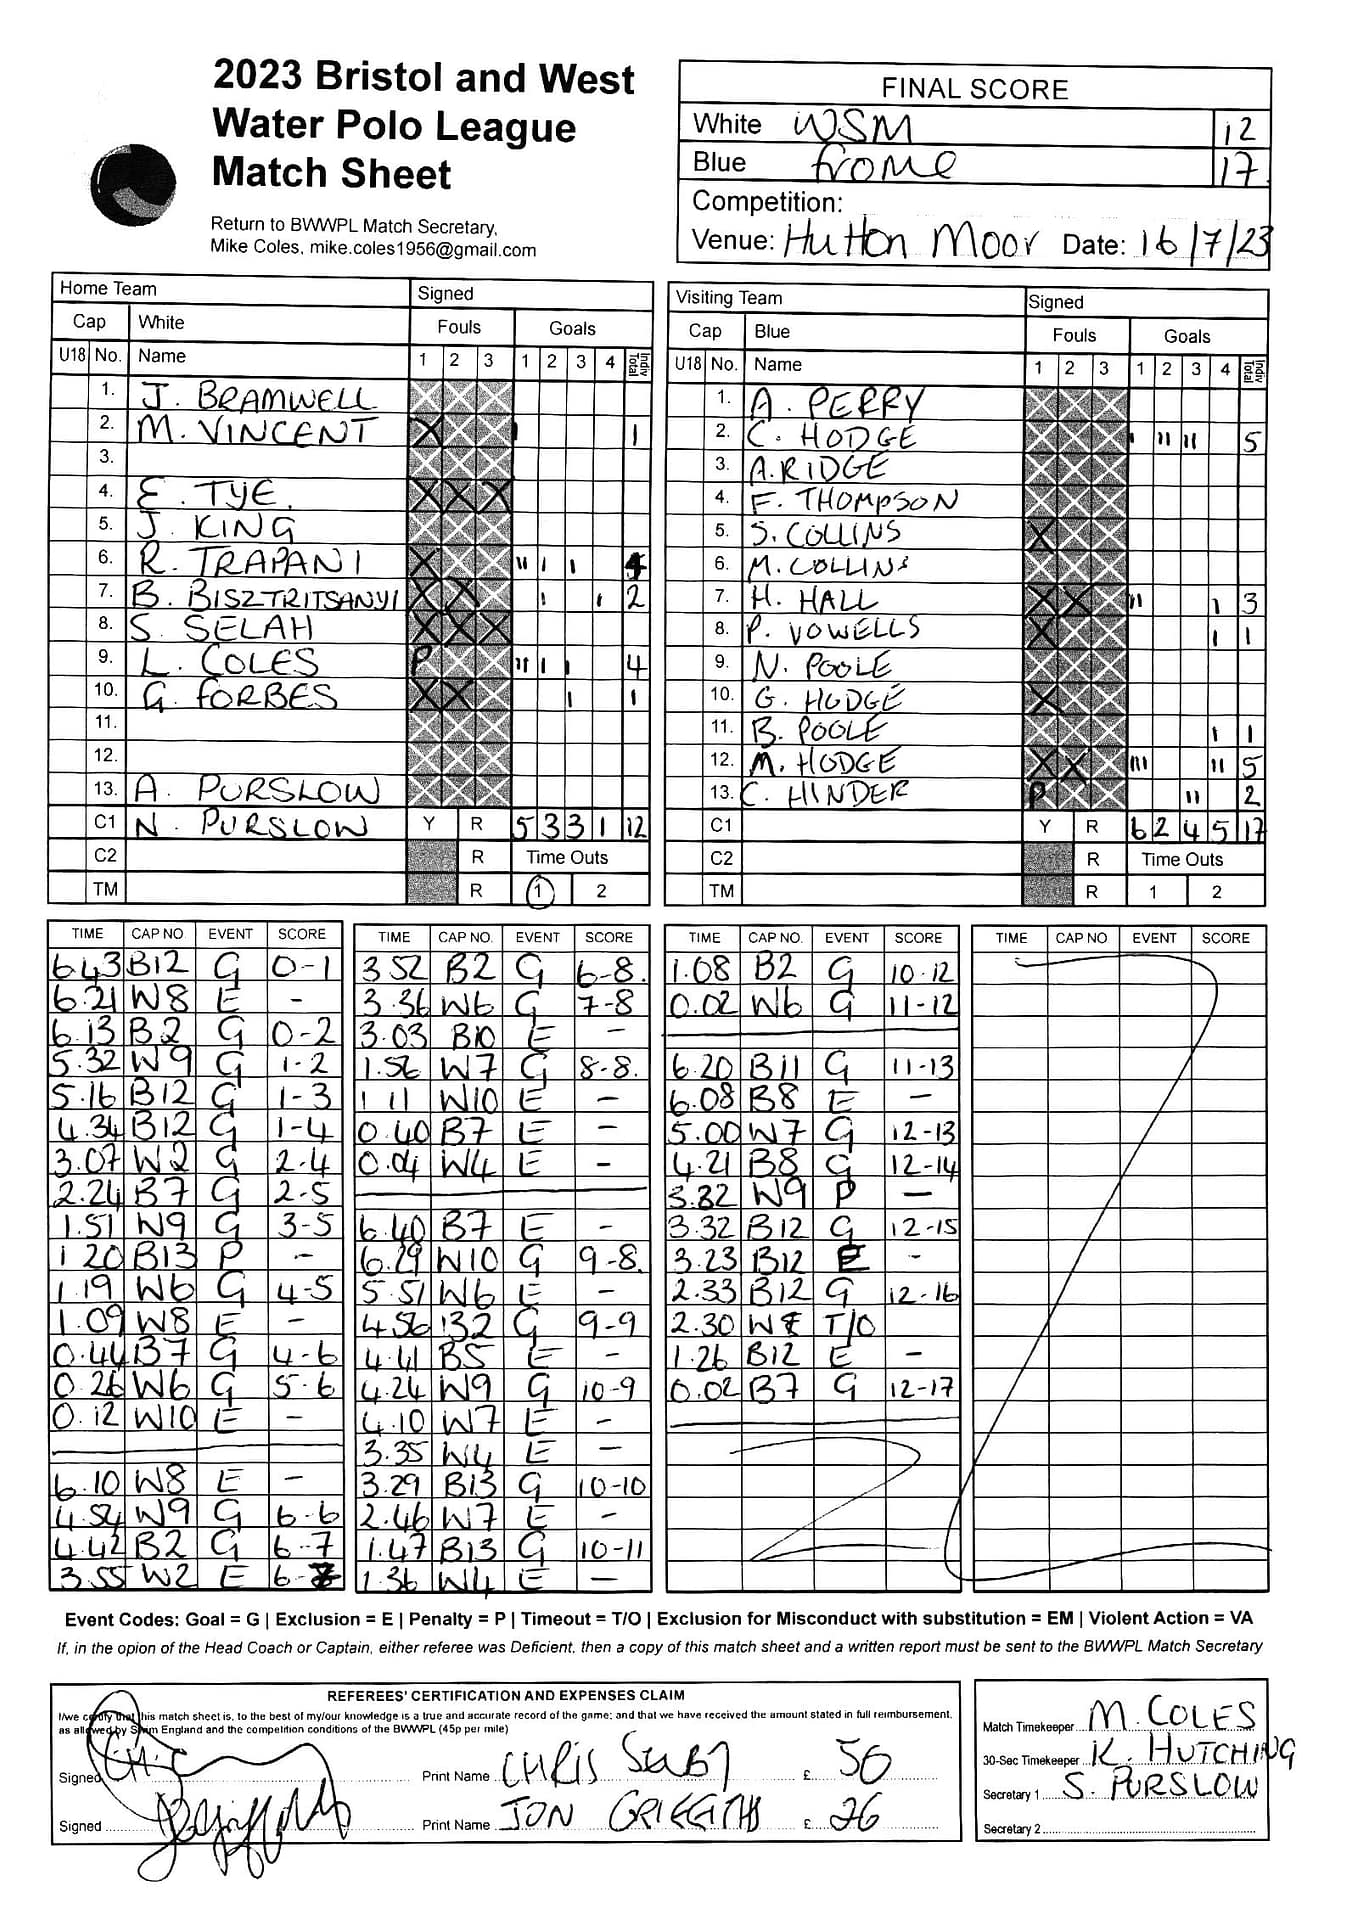 2023 Bristol and West
Water Polo League
Match Sheet
Return to BWWPL Match Secretary,
Mike Coles, mike.coles1956@gmail.com
FINAL SCORE
White WSM 12
Blue frome 17
Competition:
Venue: Hutton Moor Date: 16/7/23
Home Team Signed
Cap White Fouls Goals
U18 No. Name 1 2 3 1 2 3 4 Indiv Total
1. J. BRAMWELL
2. M. VINCENT X I 1
3.
4. E. TYE. X X X
5. J. KING
6. R. TRAPANI X II I I 4
7. B. BISZTRITSANYI X X I I 2
8. S. SELAH X X X
9. L. COLES P II I I 4
10. G. FORBES X X I 1
11.
12.
13. A. PURSLOW
C1 N. PURSLOW Y R 5 3 3 1 12
C2 R Time Outs
TM R 1 2
Visiting Team Signed
Cap Blue Fouls Goals
U18 No. Name 1 2 3 1 2 3 4 Indiv Total
1. A. PERRY
2. C. HODGE I II II 5
3. A. RIDGE
4. F. THOMPSON
5. S. COLLINS X
6. M. COLLINS
7. H. HALL X X II I 3
8. P. VOWELLS X I 1
9. N. POOLE
10. G. HODGE X
11. B. POOLE I 1
12. M. HODGE X X III II 5
13. C. HINDER P II 2
C1 Y R 6 2 4 5 17
C2 R Time Outs
TM R 1 2
TIME CAP NO. EVENT SCORE
6.43 B12 G 0-1
6.21 W8 E -
6.13 B2 G 0-2
5.32 W9 G 1-2
5.16 B12 G 1-3
4.34 B12 G 1-4
3.07 W2 G 2-4
2.24 B7 G 2-5
1.51 W9 G 3-5
1 20 B13 P -
1.19 W6 G 4-5
1.09 W8 E -
0.44 B7 G 4-6
0.26 W6 G 5-6
0.12 W10 E -
6.10 W8 E -
4.54 W9 G 6-6
4.42 B2 G 6-7
3.55 W2 E 6-
TIME CAP NO. EVENT SCORE
3 52 B2 G 6-8.
3.36 W6 G 7-8
3.03 B10 E -
1.56 W7 G 8-8.
1 11 W10 E -
0.40 B7 E -
0.04 W4 E -
6.40 B7 E -
6.29 W10 G 9-8.
5.51 W6 E -
4.56 B2 G 9-9
4.41 B5 E -
4.24 W9 G 10-9
4.10 W7 E -
3.35 W4 E -
3.29 B13 G 10-10
2.46 W7 E -
1.47 B13 G 10-11
1.36 W4 E -
TIME CAP NO. EVENT SCORE
1.08 B2 G 10-12
0.02 W6 G 11-12
6.20 B11 G 11-13
6.08 B8 E -
5.00 W7 G 12-13
4.21 B8 G 12-14
3.32 W9 P -
3.32 B12 G 12-15
3.23 B12 E -
2.33 B12 G 12-16
2.30 W T/O
1.26 B12 E -
0.02 B7 G 12-17
TIME CAP NO EVENT SCORE
Event Codes: Goal = G | Exclusion = E | Penalty = P | Timeout = T/O | Exclusion for Misconduct with substitution = EM | Violent Action = VA
If, in the opion of the Head Coach or Captain, either referee was Deficient, then a copy of this match sheet and a written report must be sent to the BWWPL Match Secretary
REFEREES' CERTIFICATION AND EXPENSES CLAIM
I/we certify that this match sheet is, to the best of my/our knowledge is a true and accurate record of the game; and that we have received the amount stated in full reimbursement,
as allowed by Swim England and the competition conditions of the BWWPL (45p per mile)
Signed Print Name CHRIS SELBY £ 50
Signed Print Name JON GRIFFITHS £ 26
Match Timekeeper M. COLES
30-Sec Timekeeper K. HUTCHING
Secretary 1 S. PURSLOW
Secretary 2